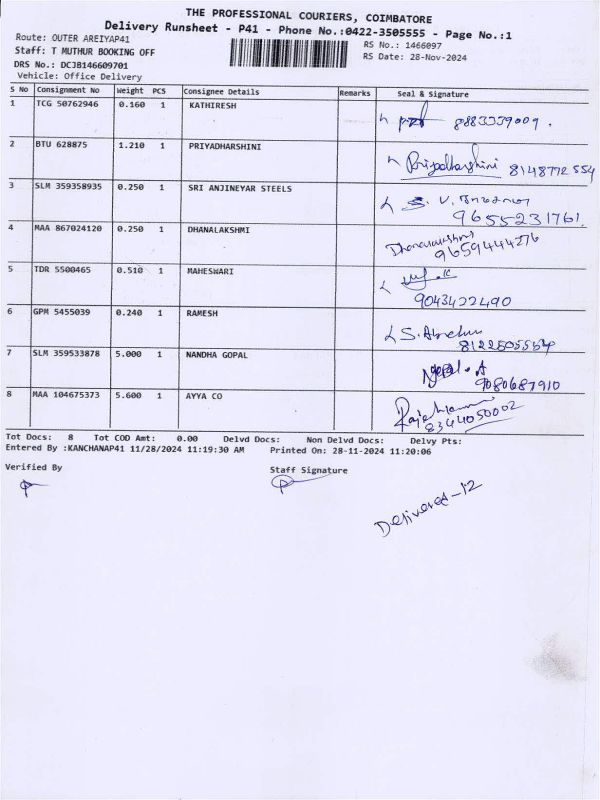 THE PROFESSIONAL COURIERS, COIMBATORE
Delivery Runsheet - P41 - Phone No.:0422-3505555 - Page No.:1
Route: OUTER AREIYAP41 RS No.: 1466097
Staff: T MUTHUR BOOKING OFF RS Date: 28-Nov-2024
DRS No.: DCJB146609701
Vehicle: Office Delivery
S No Consignment No Weight PCS Consignee Details Remarks Seal & Signature
1 TCG 50762946 0.160 1 KATHIRESH
8883339009.
2 BTU 628875 1.210 1 PRIYADHARSHINI
Priyadharshini 8148772554
3 SLM 359358935 0.250 1 SRI ANJINEYAR STEELS
9655231761.
4 MAA 867024120 0.250 1 DHANALAKSHMI
Dhanalakshmi
9659444276
5 TDR 5500465 0.510 1 MAHESWARI
9043422490
6 GPM 5455039 0.240 1 RAMESH
7 SLM 359533878 5.000 1 NANDHA GOPAL
9080687910
8 MAA 104675373 5.600 1 AYYA CO
8344050002
Tot Docs: 8 Tot COD Amt: 0.00 Delvd Docs: Non Delvd Docs: Delvy Pts:
Entered By :KANCHANAP41 11/28/2024 11:19:30 AM Printed On: 28-11-2024 11:20:06
Verified By Staff Signature
Delivered-12